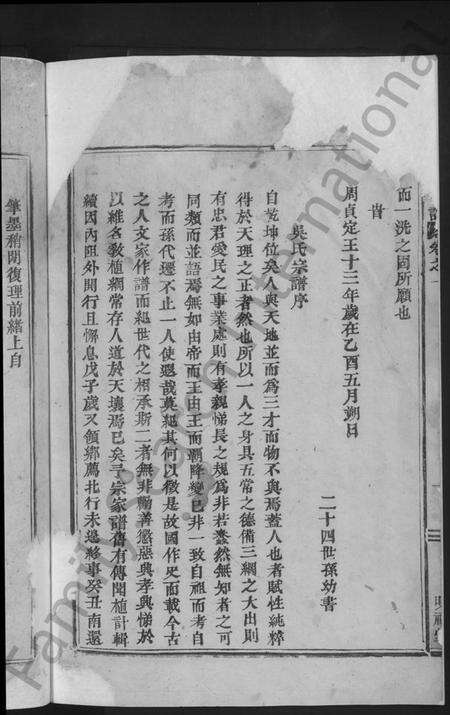 而一洗之固所願也
時
周貞定王十三年歲在乙酉五月朔日
二十四世孫幼書
吳氏宗譜序
自乾坤位矣人與天地並而為三才而物不與焉蓋人也者賦性純粹
得於天理之正者然也所以一人之身具五常之德備三綱之大出則
有忠君愛民之事業處則有孝親悌長之規為非若蠢然無知者之可
同類而並語焉無如由帝而王由王而霸降變已非一致自祖而考自
考而孫代遷不止一人使遐哉莫紀其何以徵是故國作史而載今古
之人文家作譜而紀世代之相承斯二者無非勸善懲惡興孝興悌於
以維名教植綱常存人道於天壤焉已矣予宗家譜舊有傳聞植計輯
續因內阻外閒行且懈息戊子歲又領鄉薦北行未遑終事癸丑南還
筆墨稍閒復理前緒上自
FamilySearch International